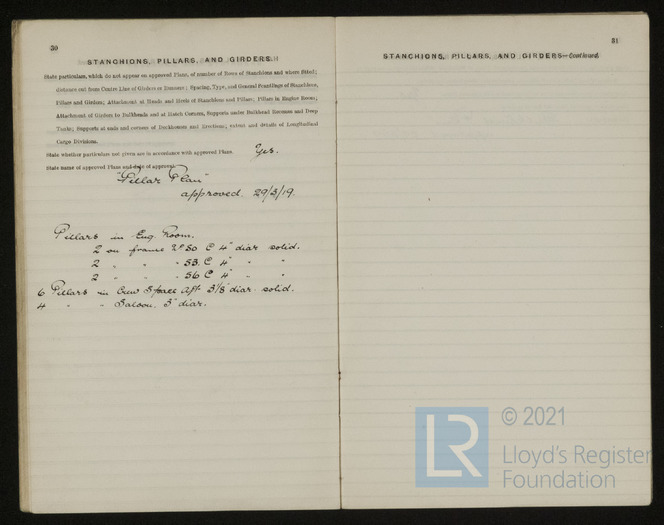 30
STANCHIONS, PILLARS, AND GIRDERS.
State particulars, which do not appear on approved Plans, of number of Rows of Stanchions and where fitted;
distance out from Centre Line of Girders or Runners; Spacing, Type, and General Scantlings of Stanchions,
Pillars and Girders; Attachment of Heads and Heels of Stanchions and Pillars; Pillars in Engine Room;
Attachment of Girders to Bulkheads and at Hatch Corners, Supports under Bulkhead Recesses and Deep
Tanks; Supports at ends and corners of Deckhouses and Erections; extent and details of Longitudinal
Cargo Divisions.
State whether particulars not given are in accordance with approved Plans. Yes.
State name of approved Plans and date of approval.
"Pillar Plan"
approved. 29/3/19.
Pillars in Eng. Room.
2 on frame No 50 C 4" diar solid.
2 " " " 53. C 4" " "
2 " " " 56 C 4" " "
6 Pillars in Crew Space Aft 3 1/8" diar. solid.
4 " " Saloon. 3" diar.
31
STANCHIONS, PILLARS, AND GIRDERS—Continued.
LR
© 2021
Lloyd's Register
Foundation